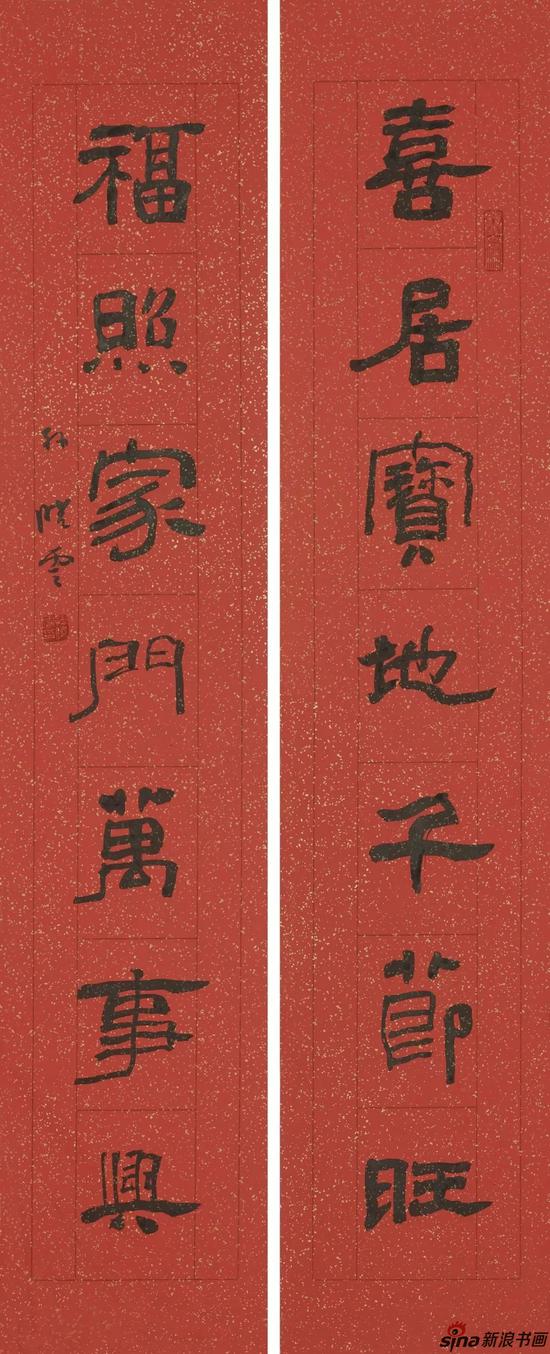 喜居寶地子莭旺
福照家門萬事興
孫曉雲
sina新浪书画